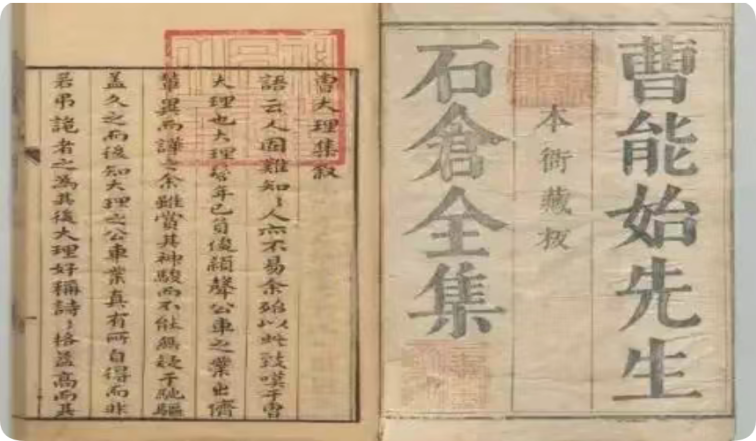 曹能始先生
本衙藏板
石倉全集
曹大理集敘
語云人固難知〻人亦不易余殆以此致嘆于曹
大理也大理當年已負俊穎聲公車之業出儕
輩異而譁之余雖賞其神駿而不能無疑于馳驅
蓋久之而後知大理之公車業真有所自得而非
若弔詭者之為其後大理好稱詩〻格益高而其